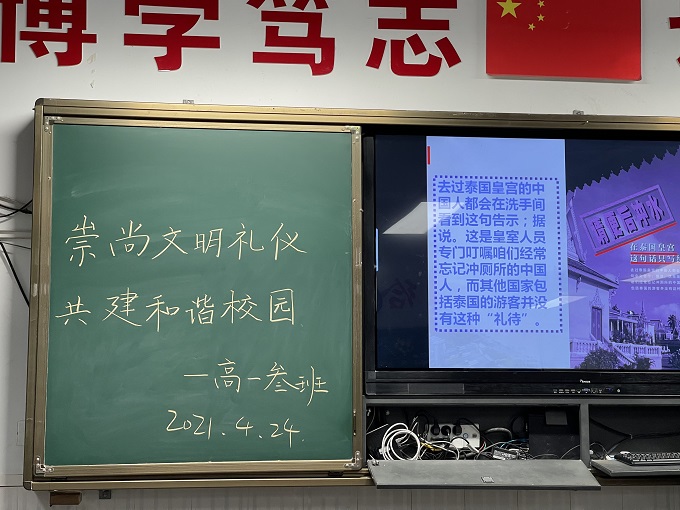 博学笃志
崇尚文明礼仪
共建和谐校园
一高一叁班
2021.4.24
去过泰国皇宫的中
国人都会在洗手间
看到这句告示；据
说。这是皇室人员
专门叮嘱咱们经常
忘记冲厕所的中国
人，而其他国家包
括泰国的游客并没
有这种“礼待”。
请便后冲水
在泰国皇宫